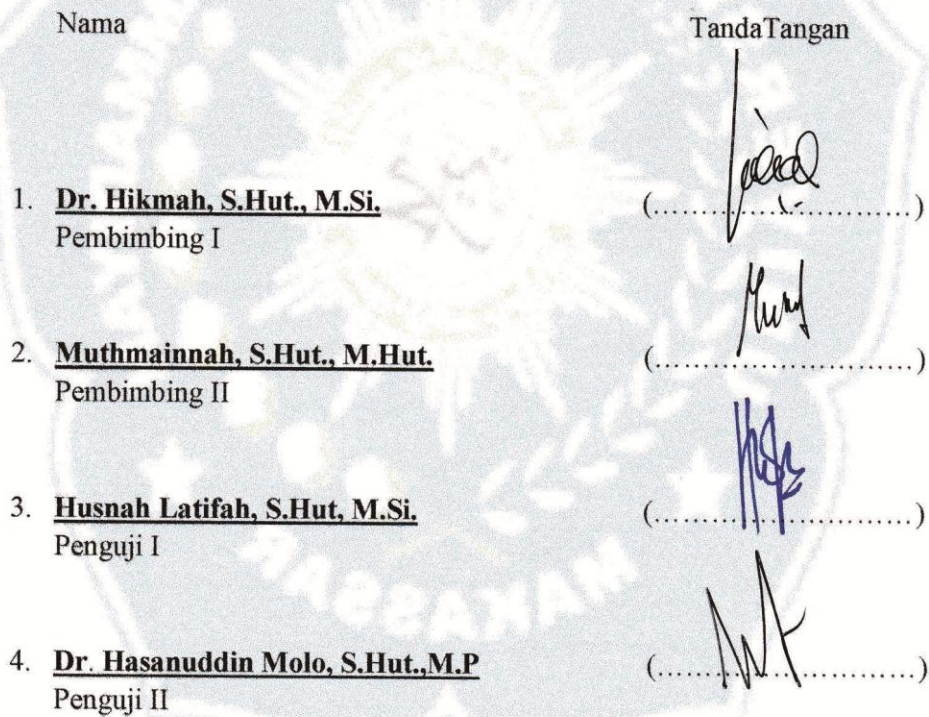 Nama TandaTangan
1. Dr. Hikmah, S.Hut., M.Si. (............................)
Pembimbing I
2. Muthmainnah, S.Hut., M.Hut. (............................)
Pembimbing II
3. Husnah Latifah, S.Hut, M.Si. (............................)
Penguji I
4. Dr. Hasanuddin Molo, S.Hut.,M.P (............................)
Penguji II
MAKASSAR